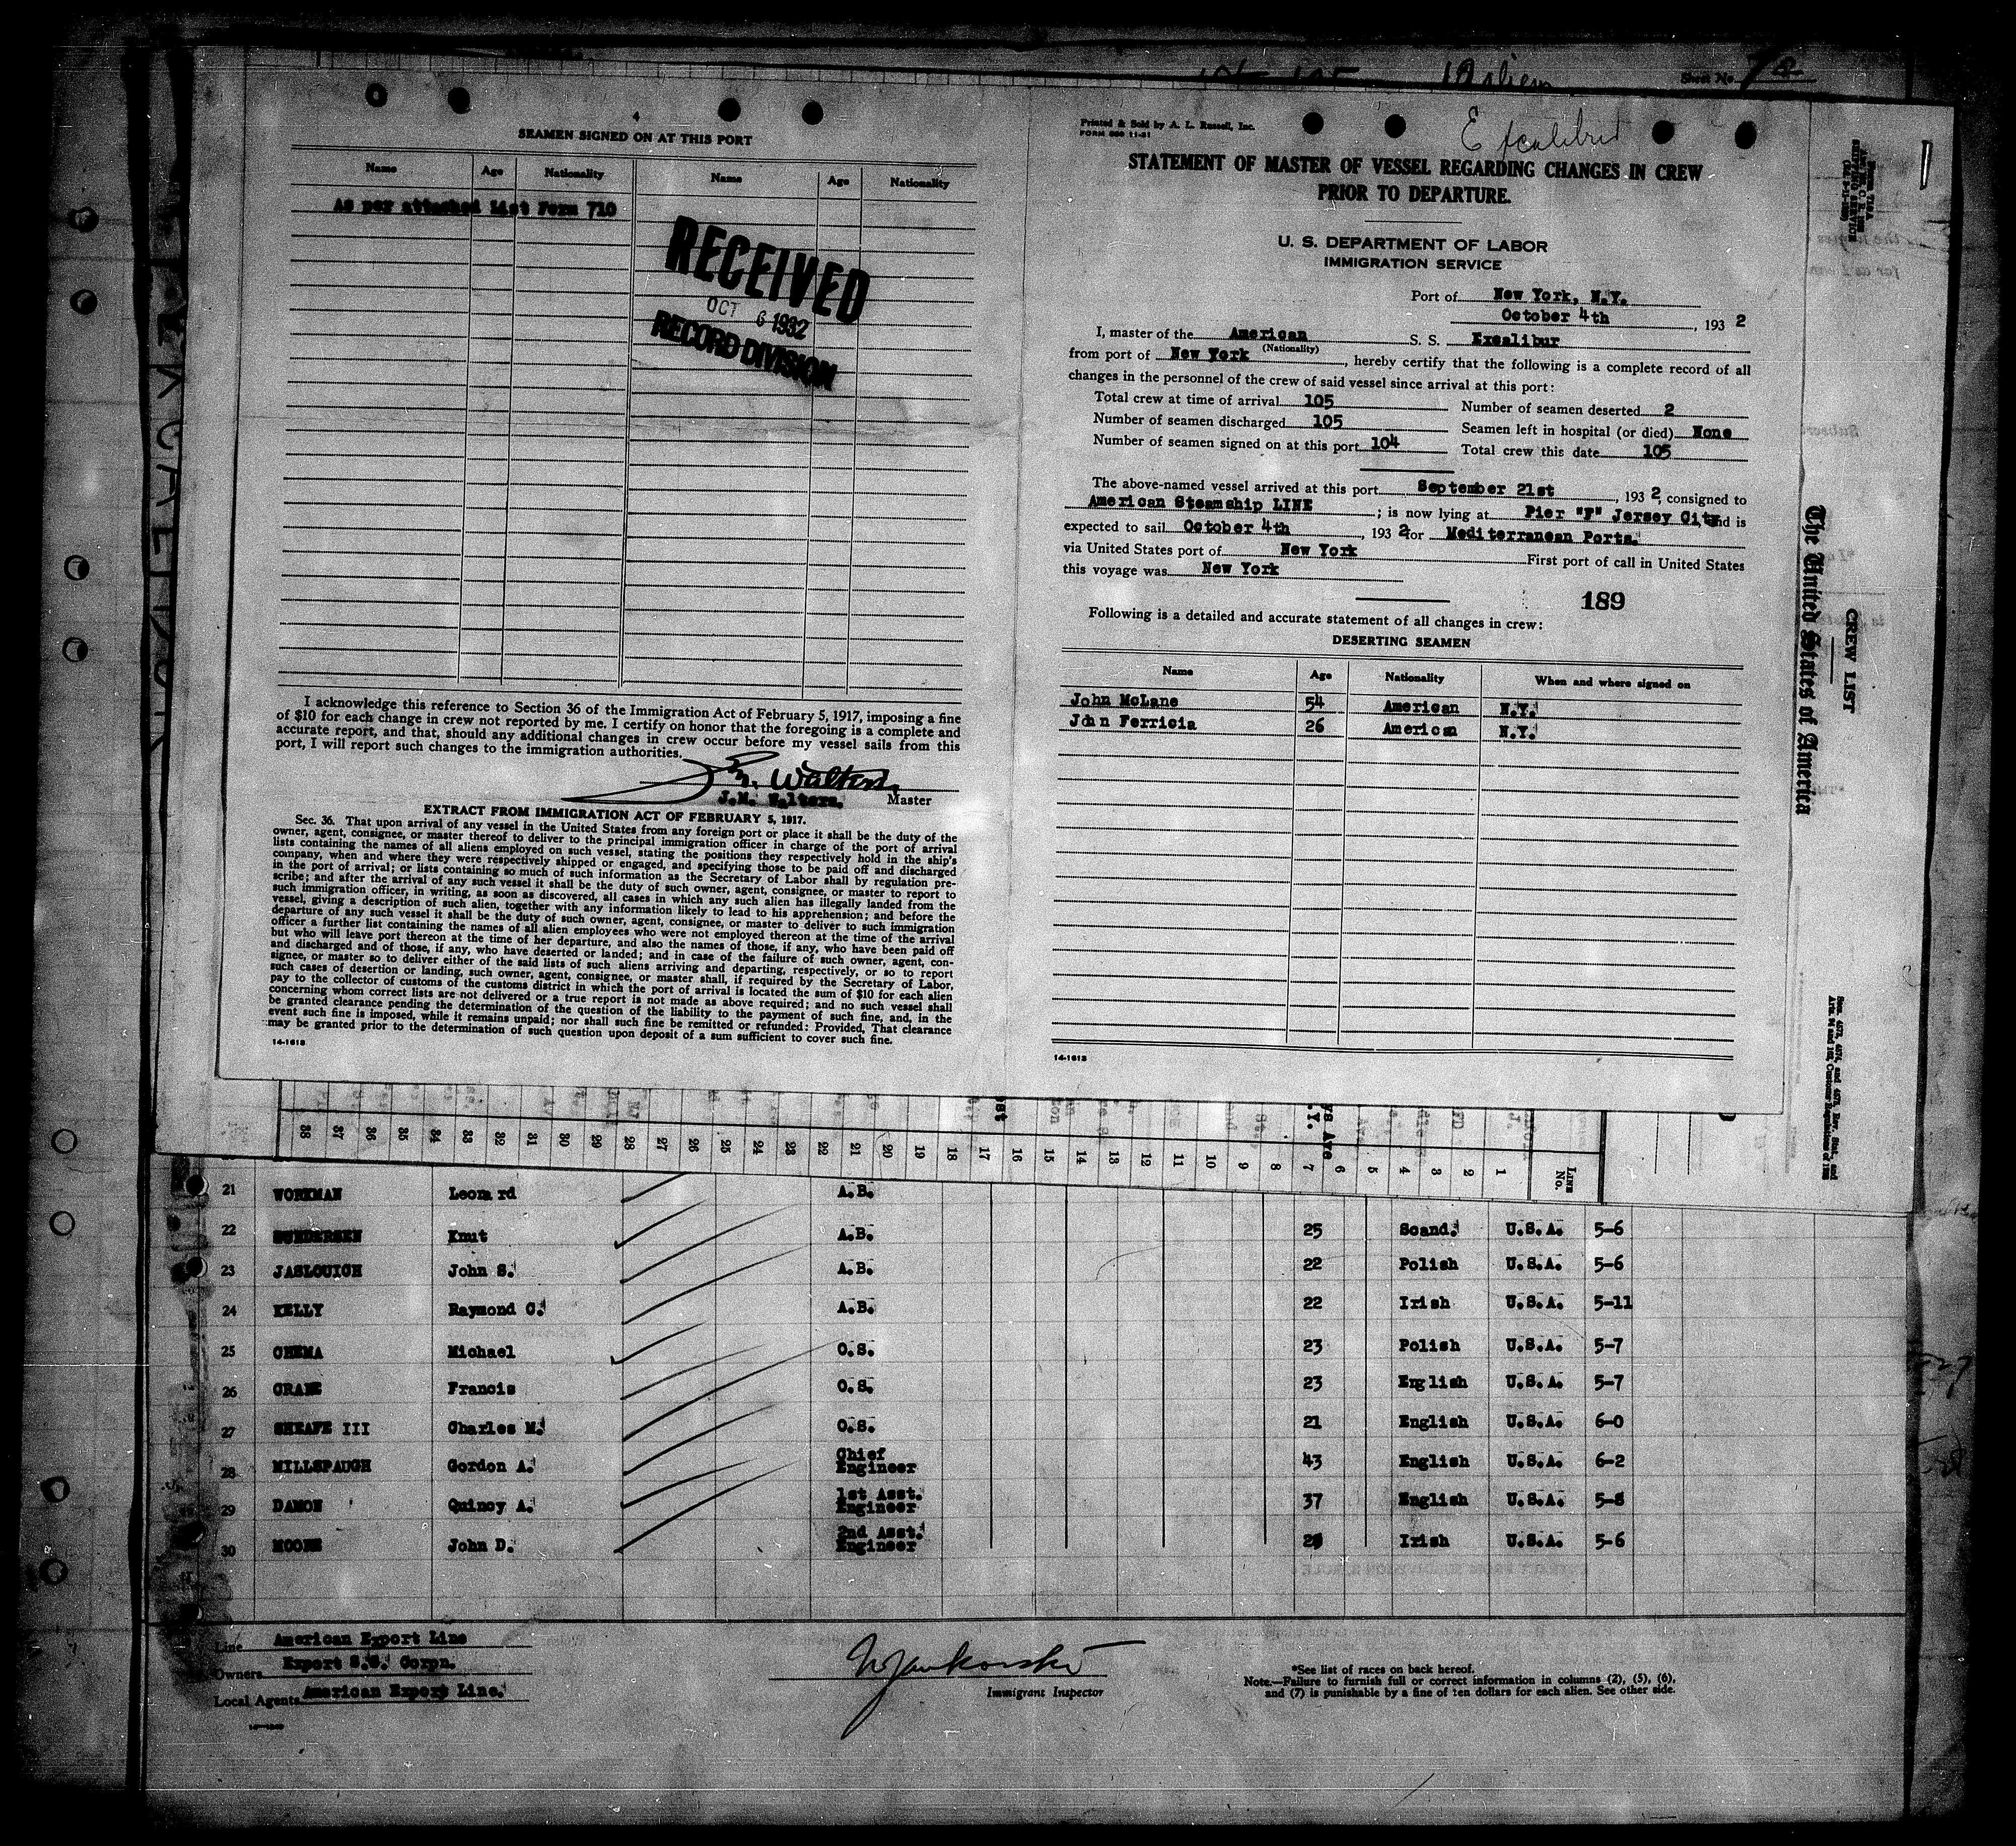 Sheet No.
4
SEAMEN SIGNED ON AT THIS PORT
Name Age Nationality Name Age Nationality
As per attached List Form 710
RECEIVED
OCT 6 1932
RECORD DIVISION
I acknowledge this reference to Section 36 of the Immigration Act of February 5, 1917, imposing a fine
of $10 for each change in crew not reported by me. I certify on honor that the foregoing is a complete and
accurate report, and that, should any additional changes in crew occur before my vessel sails from this
port, I will report such changes to the immigration authorities.
J.M. Walters. Master
EXTRACT FROM IMMIGRATION ACT OF FEBRUARY 5, 1917.
Sec. 36. That upon arrival of any vessel in the United States from any foreign port or place it shall be the duty of the
owner, agent, consignee, or master thereof to deliver to the principal immigration officer in charge of the port of arrival
lists containing the names of all aliens employed on such vessel, stating the positions they respectively hold in the ship's
company, when and where they were respectively shipped or engaged, and specifying those to be paid off and discharged
in the port of arrival; or lists containing so much of such information as the Secretary of Labor shall by regulation pre-
scribe; and after the arrival of any such vessel it shall be the duty of such owner, agent, consignee, or master to report to
such immigration officer, in writing, as soon as discovered, all cases in which any such alien has illegally landed from the
vessel, giving a description of such alien, together with any information likely to lead to his apprehension; and before the
departure of any such vessel it shall be the duty of such owner, agent, consignee, or master to deliver to such immigration
officer a further list containing the names of all alien employees who were not employed thereon at the time of the arrival
but who will leave port thereon at the time of her departure, and also the names of those, if any, who have been paid off
and discharged and of those, if any, who have deserted or landed; and in case of the failure of such owner, agent, con-
signee, or master so to deliver either of the said lists of such aliens arriving and departing, respectively, or so to report
such cases of desertion or landing, such owner, agent, consignee, or master shall, if required by the Secretary of Labor,
pay to the collector of customs of the customs district in which the port of arrival is located the sum of $10 for each alien
concerning whom correct lists are not delivered or a true report is not made as above required; and no such vessel shall
be granted clearance pending the determination of the question of the liability to the payment of such fine, and, in the
event such fine is imposed, while it remains unpaid; nor shall such fine be remitted or refunded: Provided, That clearance
may be granted prior to the determination of such question upon deposit of a sum sufficient to cover such fine.
14-1613
Printed & Sold by A. L. Russell, Inc.
Excalibur
STATEMENT OF MASTER OF VESSEL REGARDING CHANGES IN CREW
PRIOR TO DEPARTURE.
U. S. DEPARTMENT OF LABOR
IMMIGRATION SERVICE
Port of New York, N.Y.
October 4th, 193 2
I, master of the American S. S. Excalibur
(Nationality)
from port of New York, hereby certify that the following is a complete record of all
changes in the personnel of the crew of said vessel since arrival at this port:
Total crew at time of arrival 105 Number of seamen deserted 2
Number of seamen discharged 105 Seamen left in hospital (or died) None
Number of seamen signed on at this port 104 Total crew this date 105
The above-named vessel arrived at this port September 21st, 193 2, consigned to
American Steamship LINE; is now lying at Pier "F" Jersey City and is
expected to sail October 4th, 193 2 for Mediterranean Ports.
via United States port of New York First port of call in United States
this voyage was New York
189
Following is a detailed and accurate statement of all changes in crew:
DESERTING SEAMEN
Name Age Nationality When and where signed on
John McLane 54 American N.Y.
John Ferricia 26 American N.Y.
14-1613
CREW LIST
The United States of America
38 37 36 35 34 33 32 31 30 29 28 27 26 25 24 23 22 21 20 19 18 17 16 15 14 13 12 11 10 9 8 7 6 5 4 3 2 1 LINE No.
21 WORKMAN Leonard A.B.
22 GUNDERSEN Knut A.B. 25 Scand. U.S.A. 5-6
23 JASLOUICH John S. A.B. 22 Polish U.S.A. 5-6
24 KELLY Raymond C. A.B. 22 Irish U.S.A. 5-11
25 CHEMA Michael O.S. 23 Polish U.S.A. 5-7
26 CRANE Francis O.S. 23 English U.S.A. 5-7
27 SHEAFE III Charles M. O.S. 21 English U.S.A. 6-0
28 MILLSPAUGH Gordon A. Chief Engineer 43 English U.S.A. 6-2
29 DAMON Quincy A. 1st Asst. Engineer 37 English U.S.A. 5-8
30 MOORE John D. 2nd Asst. Engineer Irish U.S.A. 5-6
Line American Export Line
Owners Export S.S. Corpn.
Local Agents American Export Line.
Immigrant Inspector
*See list of races on back hereof.
Note.—Failure to furnish full or correct information in columns (2), (5), (6),
and (7) is punishable by a fine of ten dollars for each alien. See other side.